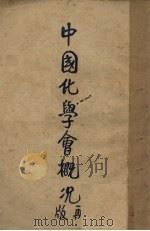 中國化學會概況
再版